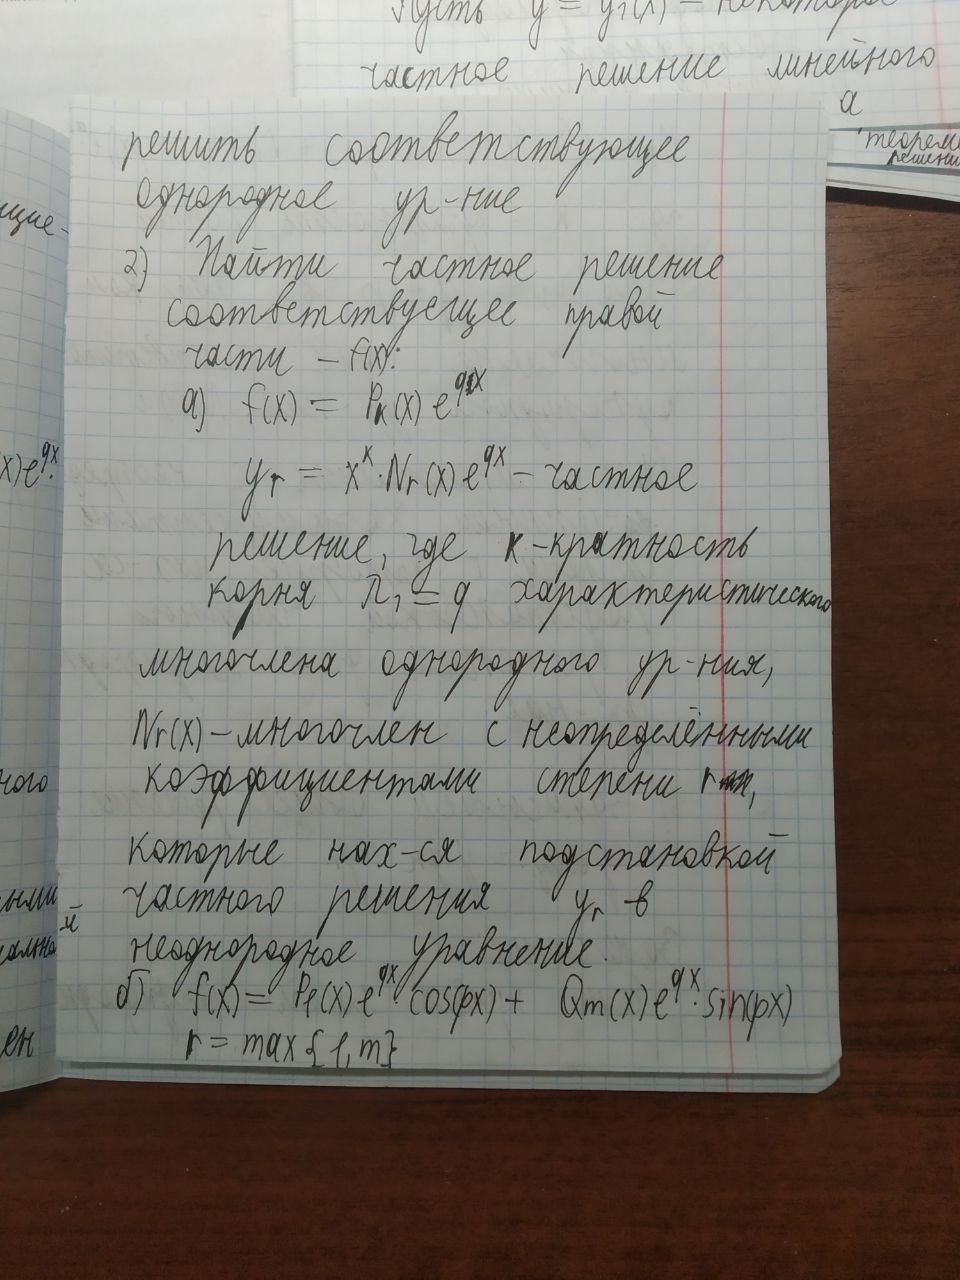 частное решение линейного
а
теорема
решени
решить соответствующее
однородное ур-ние
2) Найти частное решение
соответствующее правой
части – f(x):
а) f(x) = Pк(x) e^qx
yr = x^к · Nr(x) e^qx – частное
решение, где к-кратность
корня λ1 = q характеристического
многочлена однородного ур-ния,
Nr(x) – многочлен с неопределёнными
коэффициентами степени r
которые нах-ся подстановкой
частного решения yr в
неоднородное уравнение.
б) f(x) = Pl(x) e^qx · cos(px) + Qm(x) e^qx · sin(px)
r = max{l, m}
x) e^qx.
ного
ыми
ен